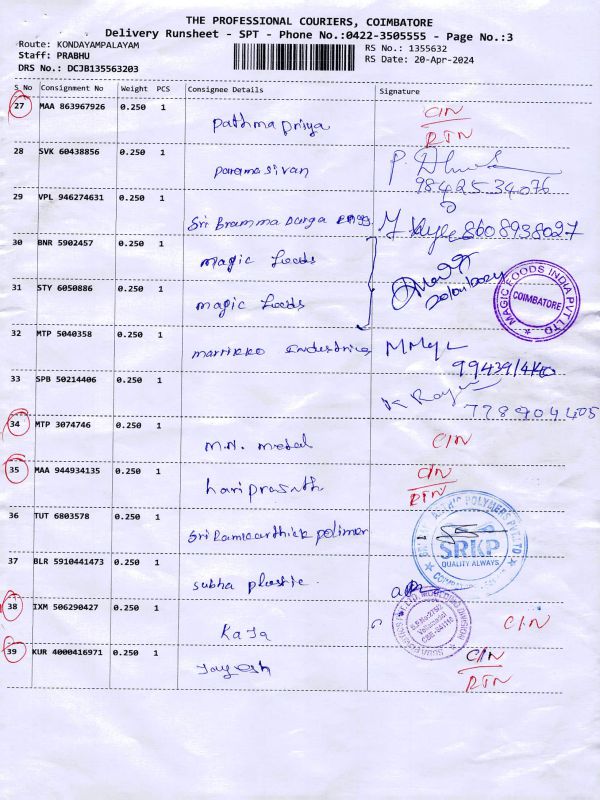 THE PROFESSIONAL COURIERS, COIMBATORE
Delivery Runsheet - SPT - Phone No.:0422-3505555 - Page No.:3
Route: KONDAYAMPALAYAM
RS No.: 1355632
Staff: PRABHU
RS Date: 20-Apr-2024
DRS No.: DCJB135563203
S No Consignment No Weight PCS Consignee Details Signature
27 MAA 863967926 0.250 1 Pathma Priya C/N
RTN
28 SVK 60438856 0.250 1 Paramasivan
9842534076
29 VPL 946274631 0.250 1 Sri Bramma Durga Engg 8608938027
30 BNR 5902457 0.250 1 Magic Foods
31 STY 6050886 0.250 1 Magic Foods
MAGIC FOODS INDIA PVT LTD. COIMBATORE
32 MTP 5040358 0.250 1
33 SPB 50214406 0.250 1
778904405
34 MTP 3074746 0.250 1 M.N. Metal C/N
35 MAA 944934135 0.250 1 Hariprasath C/N
RTN
36 TUT 6803578 0.250 1 Sri Ramkarthick Polimer
SRKP
QUALITY ALWAYS
37 BLR 5910441473 0.250 1 Subha Plastic.
38 IXM 506290427 0.250 1 Kaja C/N
39 KUR 4000416971 0.250 1 Jayesh C/N
RTN